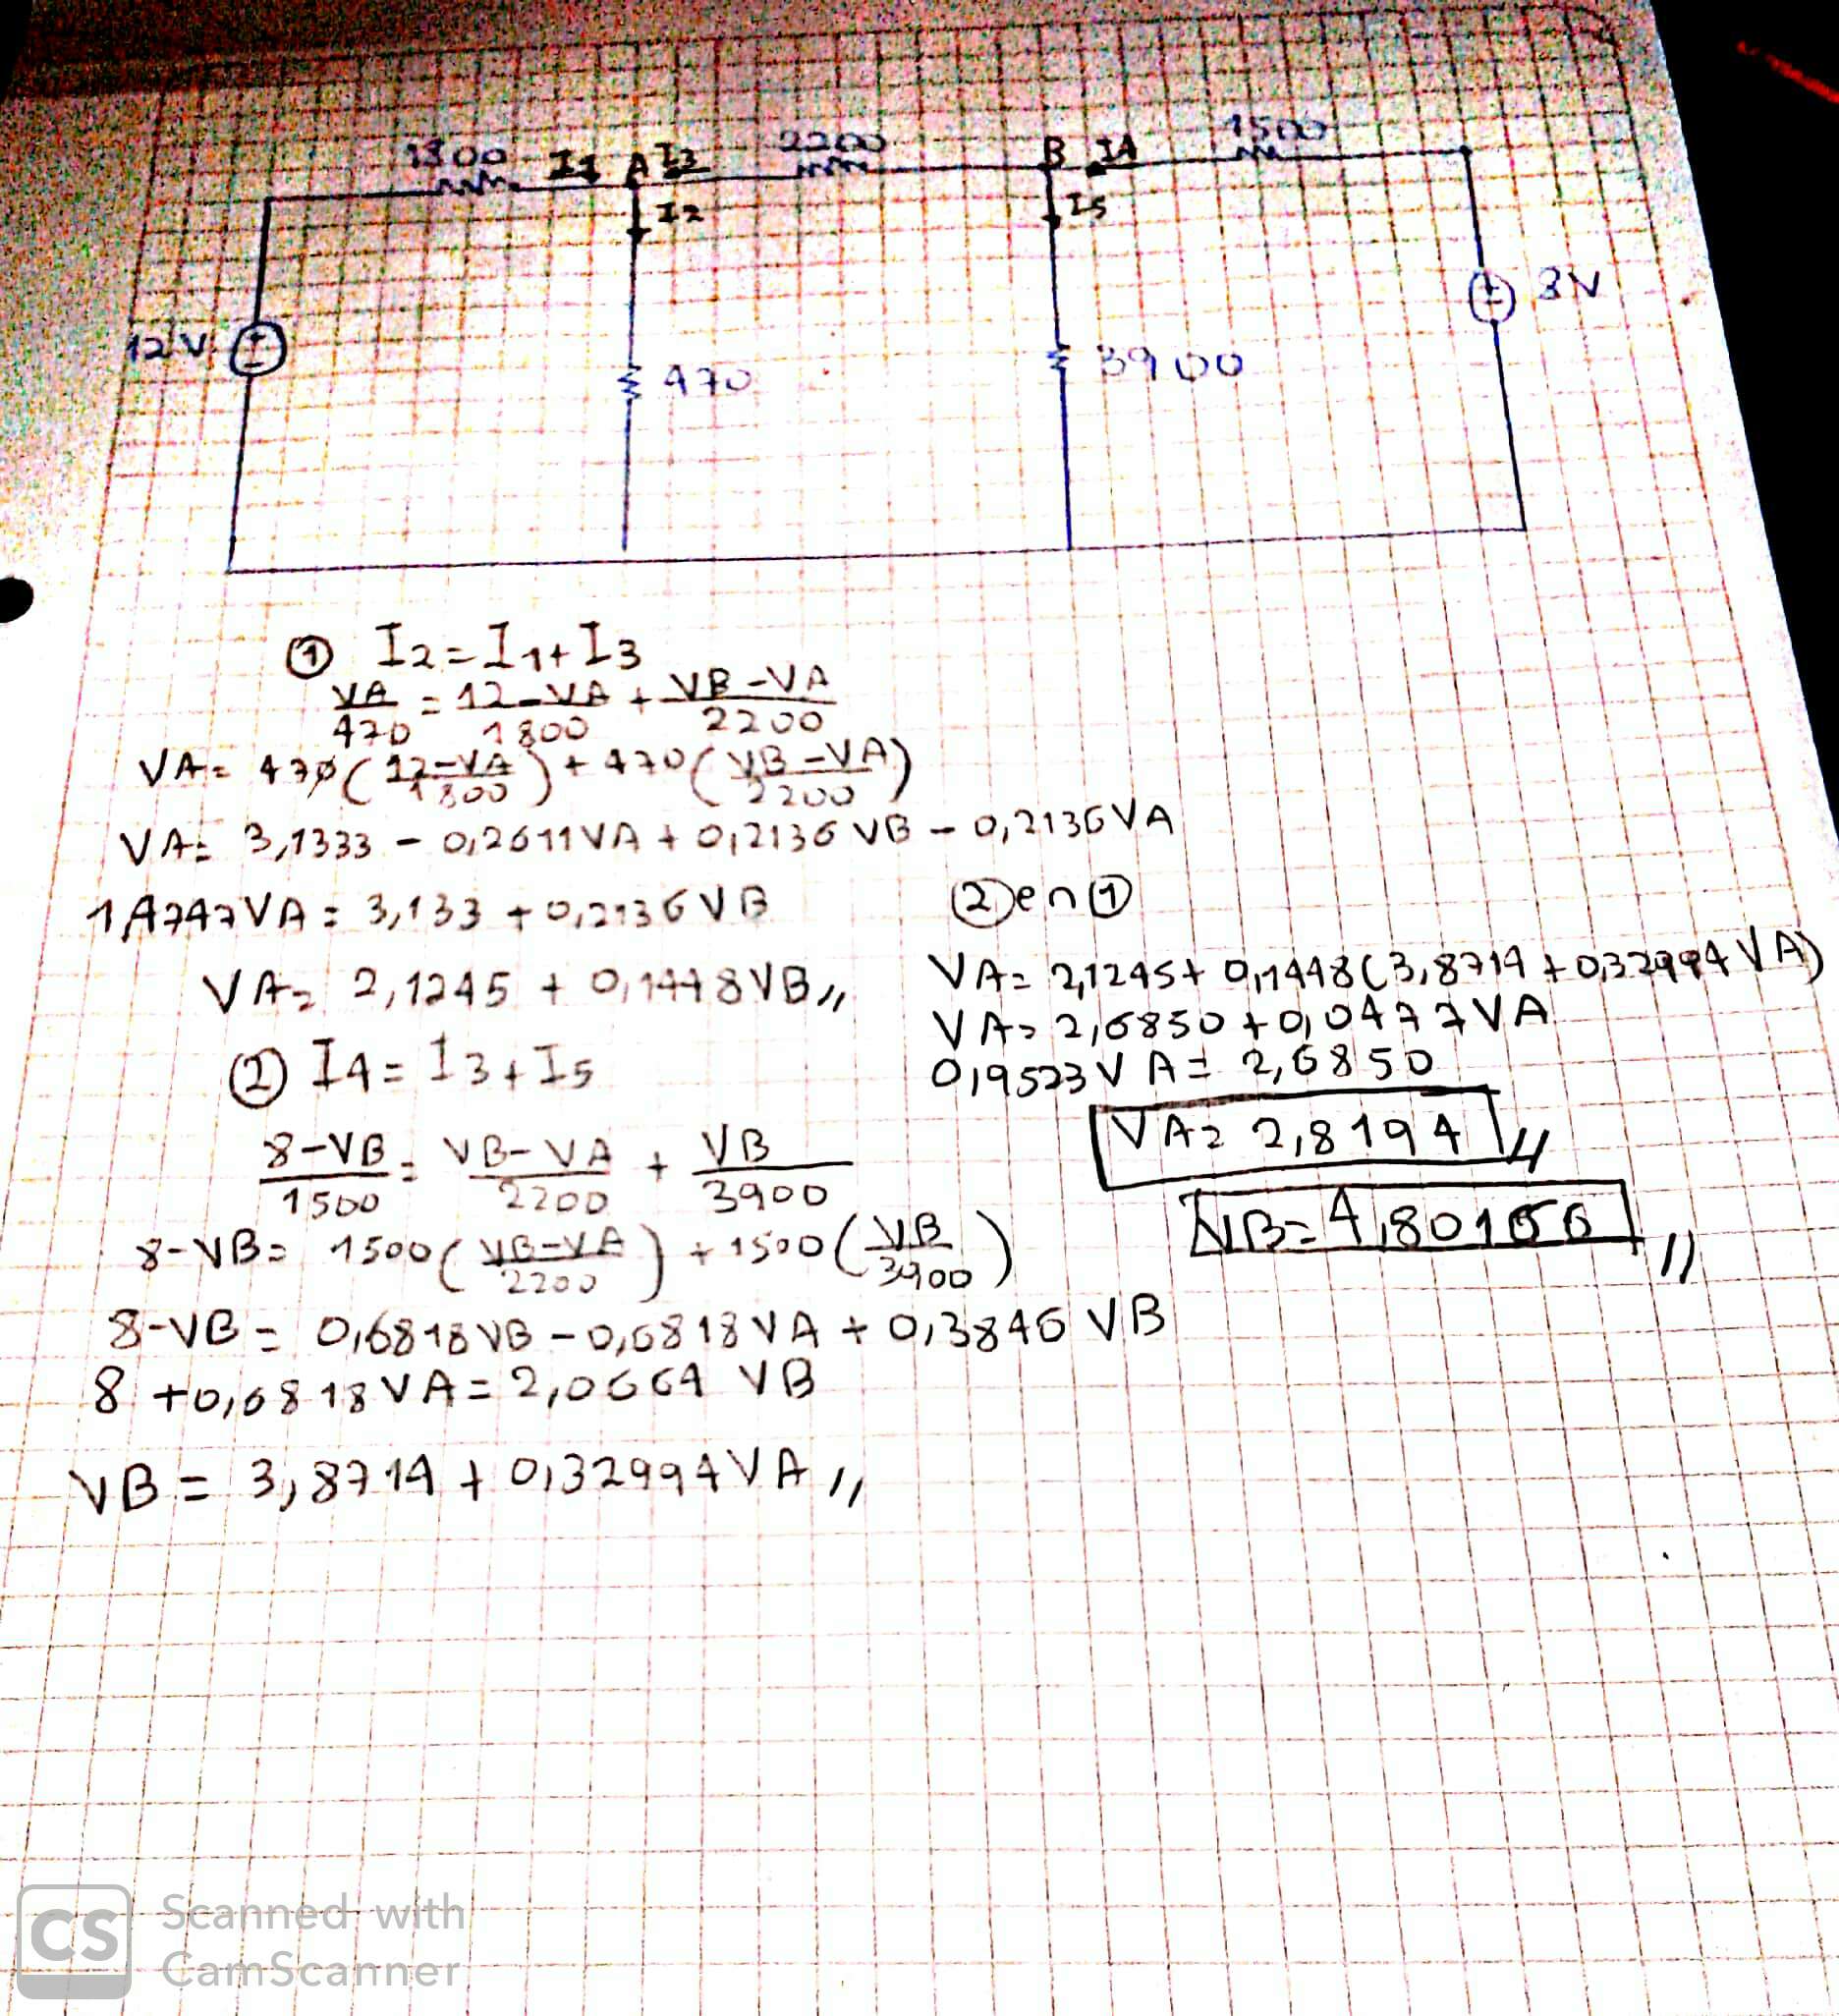 1800 I1 A I3 2200 B I4 1500
I2 I5
12 V + - + - 8V
470 3900
① I2 = I1 + I3
VA/470 = 12-VA/1800 + VB-VA/2200
VA = 470(12-VA/1800) + 470(VB-VA/2200)
VA = 3,1333 - 0,2611VA + 0,2136 VB - 0,2136VA
1,4747VA = 3,133 + 0,2136VB
VA = 2,1245 + 0,1448VB //
② I4 = I3 + I5
8-VB/1500 = VB-VA/2200 + VB/3900
8-VB = 1500(VB-VA/2200) + 1500(VB/3900)
8-VB = 0,6818VB - 0,6818VA + 0,3846 VB
8 + 0,6818VA = 2,0664 VB
VB = 3,8714 + 0,32994VA //
② en ①
VA = 2,1245 + 0,1448(3,8714 + 0,32994VA)
VA = 2,6850 + 0,0477VA
0,9523VA = 2,6850
VA = 2,8194 //
VB = 4,80166 //
CS Scanned with
CamScanner